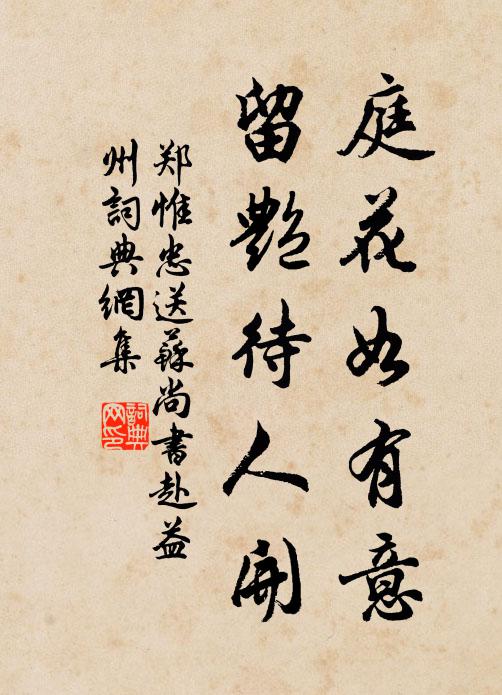 庭花如有意
留艷待人開
郑惟忠送蘇尚書赴益
州詞典網集
詞典
网印